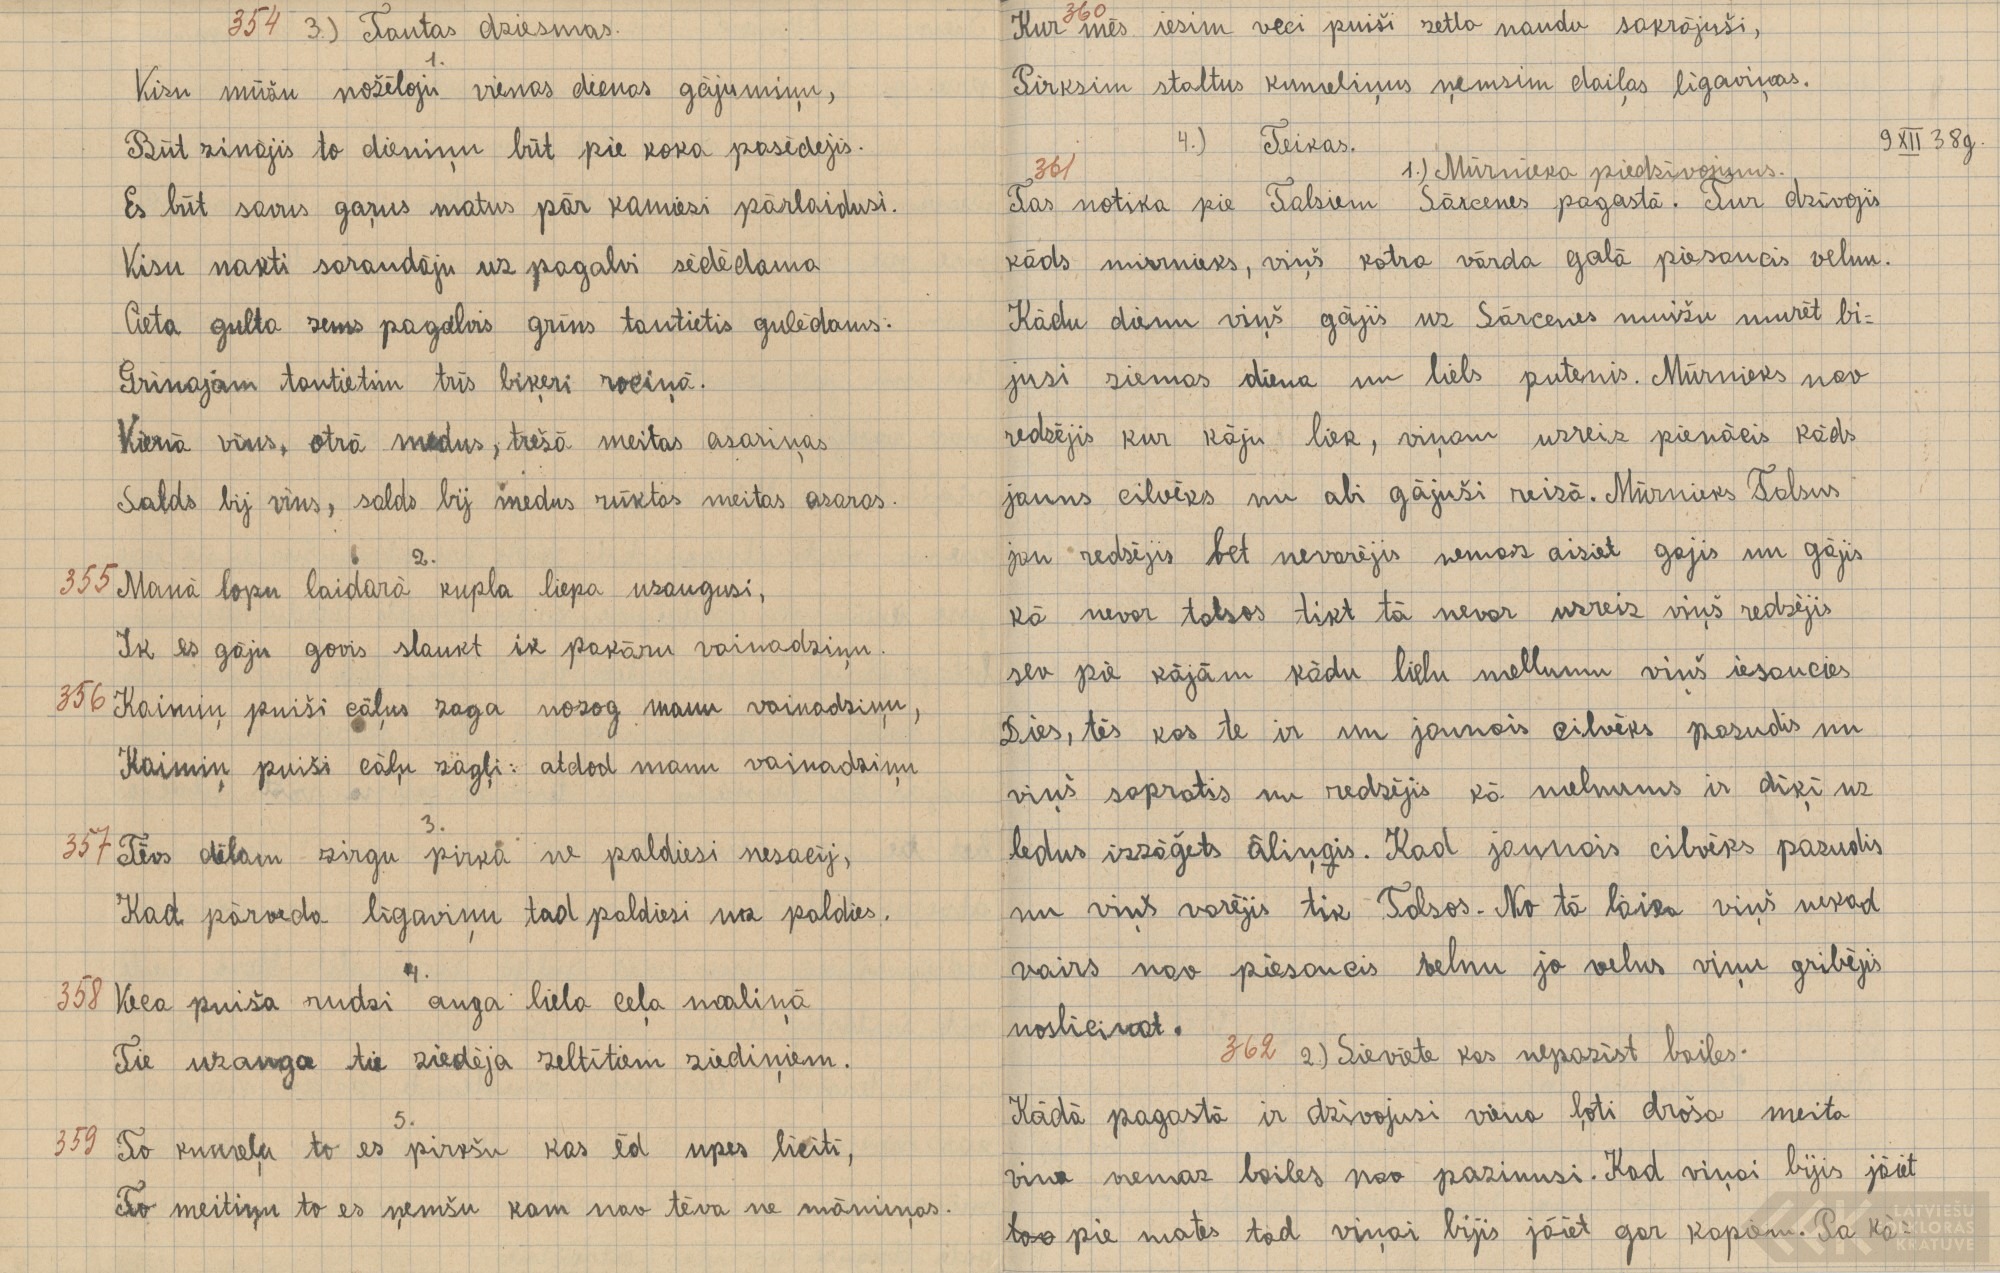 354 3.) Tautas dziesmas.
1.
Visu mūžu nožēloju vienas dienas gājumiņu,
Būt zinājis to dieniņu būt pie koka pasēdejis.
Es būt savus gaŗus matus pār kamiesi pārlaidusi.
Visu nakti soraudāju uz pagalvi sēdēdama
Cieta gulta zems pagalvis grins tautietis gulēdams.
Grinajam tautietim trīs biķeri rociņā.
Vienā vins, otrā medus, trešā meitas asariņas
Salds bij vins, salds bij medus rūktas meitas asaras.
2.
355 Manā lopu laidarā kupla liepa uzaugusi,
Ik es gāju govis slaukt ik pakāru vainadziņu.
356 Kaimiņ puiši cāļus zaga nozog manu vainadziņu,
Kaimiņ puiši cāļu zāgļi: atdod manu vainadziņu
3.
357 Tēvs dēlam zirgu pirkā ne paldiesi nesacij,
Kad pārveda līgaviņu tad paldiesi uz paldies.
4.
358 Veca puiša rudzi auga liela ceļa maliņā
Tie uzauga tie ziedēja zeltītiem ziediņiem.
5.
359 To kumeļu to es pirkšu kas ēd upes liciti,
To meitiņu to es ņemšu kam nav tēva ne māmiņas.
360
Kur mēs iesim veci puiši zelta naudu sakrājuši,
Pirksim staltus kumeliņus ņemsim daiļas līgaviņas.
4.) Teikas. 9 XII 38g.
361 1.) Mūrnieka piedzīvojums.
Tas notika pie Talsiem Sārcenes pagastā. Tur dzīvojis
kāds murnieks, viņš katra vārda galā piesaucis velnu.
Kādu dienu viņš gājis uz Sārcenes muižu murēt bi=
jusi ziemas diena un liels putenis. Mūrnieks nav
redzējis kur kāju liek, viņam uzreiz pienācis kāds
jauns cilvēks un abi gājuši reizā. Mūrnieks Talsus
jau redzējis bet nevarējis nemaz aiziet gajis un gājis
kā nevar talsos tikt tā nevar uzreiz viņš redzējis
sev pie kājām kādu lielu mellumu viņš iesaucies
Dies, tēs kas te ir un jaunais cilvēks pazudis un
viņš sapratis un redzējis kā melnums ir dīķī uz
ledus izzāģets āliņģis. Kad jaunais cilvēks pazudis
un viņš varējis tik Talsos. No tā laika viņš nekad
vairs nav piesaucis velnu jo velns viņu gribējis
noslicinat.
362 2.) Sieviete kas nepazist bailes.
Kādā pagastā ir dzīvojusi viena ļoti droša meita
vina nemaz bailes nav pazinusi. Kad viņai bijis jāiet
pie mates tad viņai bijis jāiet gar kapiem. Pa kā=
LATVIEŠU
FOLKLORAS
KRATUVE